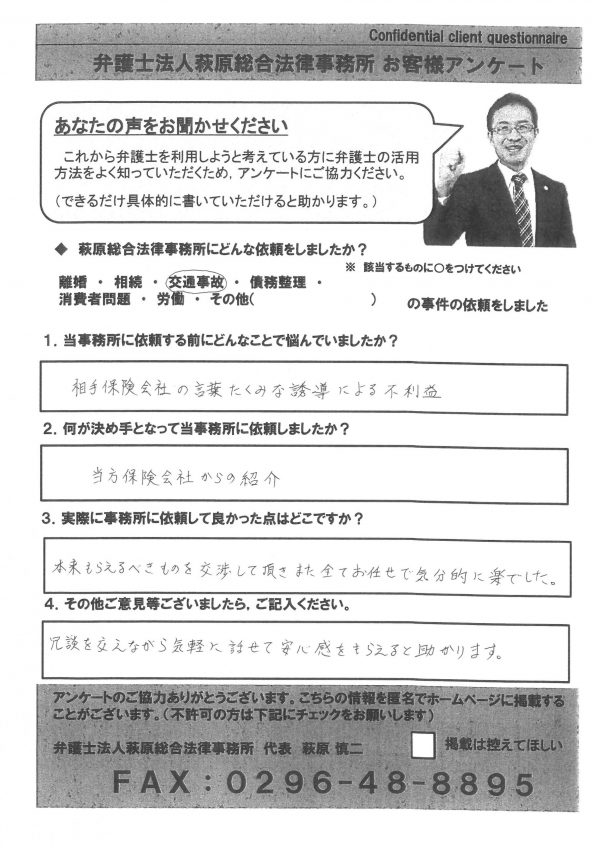 Confidential client questionnaire
弁護士法人萩原総合法律事務所 お客様アンケート
あなたの声をお聞かせください
これから弁護士を利用しようと考えている方に弁護士の活用
方法をよく知っていただくため，アンケートにご協力ください。
（できるだけ具体的に書いていただけると助かります。）
◆ 萩原総合法律事務所にどんな依頼をしましたか？
※ 該当するものに○をつけてください
離婚 ・ 相続 ・ 交通事故 ・ 債務整理 ・
消費者問題 ・ 労働 ・ その他（ ） の事件の依頼をしました
１．当事務所に依頼する前にどんなことで悩んでいましたか？
相手保険会社の言葉たくみな誘導による不利益
２．何が決め手となって当事務所に依頼しましたか？
当方保険会社からの紹介
３．実際に事務所に依頼して良かった点はどこですか？
本来もらえるべきものを交渉して頂きまた全てお任せで気分的に楽でした。
４．その他ご意見等ございましたら，ご記入ください。
冗談を交えながら気軽に話せて安心感をもらえると助かります。
アンケートのご協力ありがとうございます。こちらの情報を匿名でホームページに掲載する
ことがございます。（不許可の方は下記にチェックをお願いします）
弁護士法人萩原総合法律事務所 代表 萩原 慎二 掲載は控えてほしい
FAX：0296-48-8895